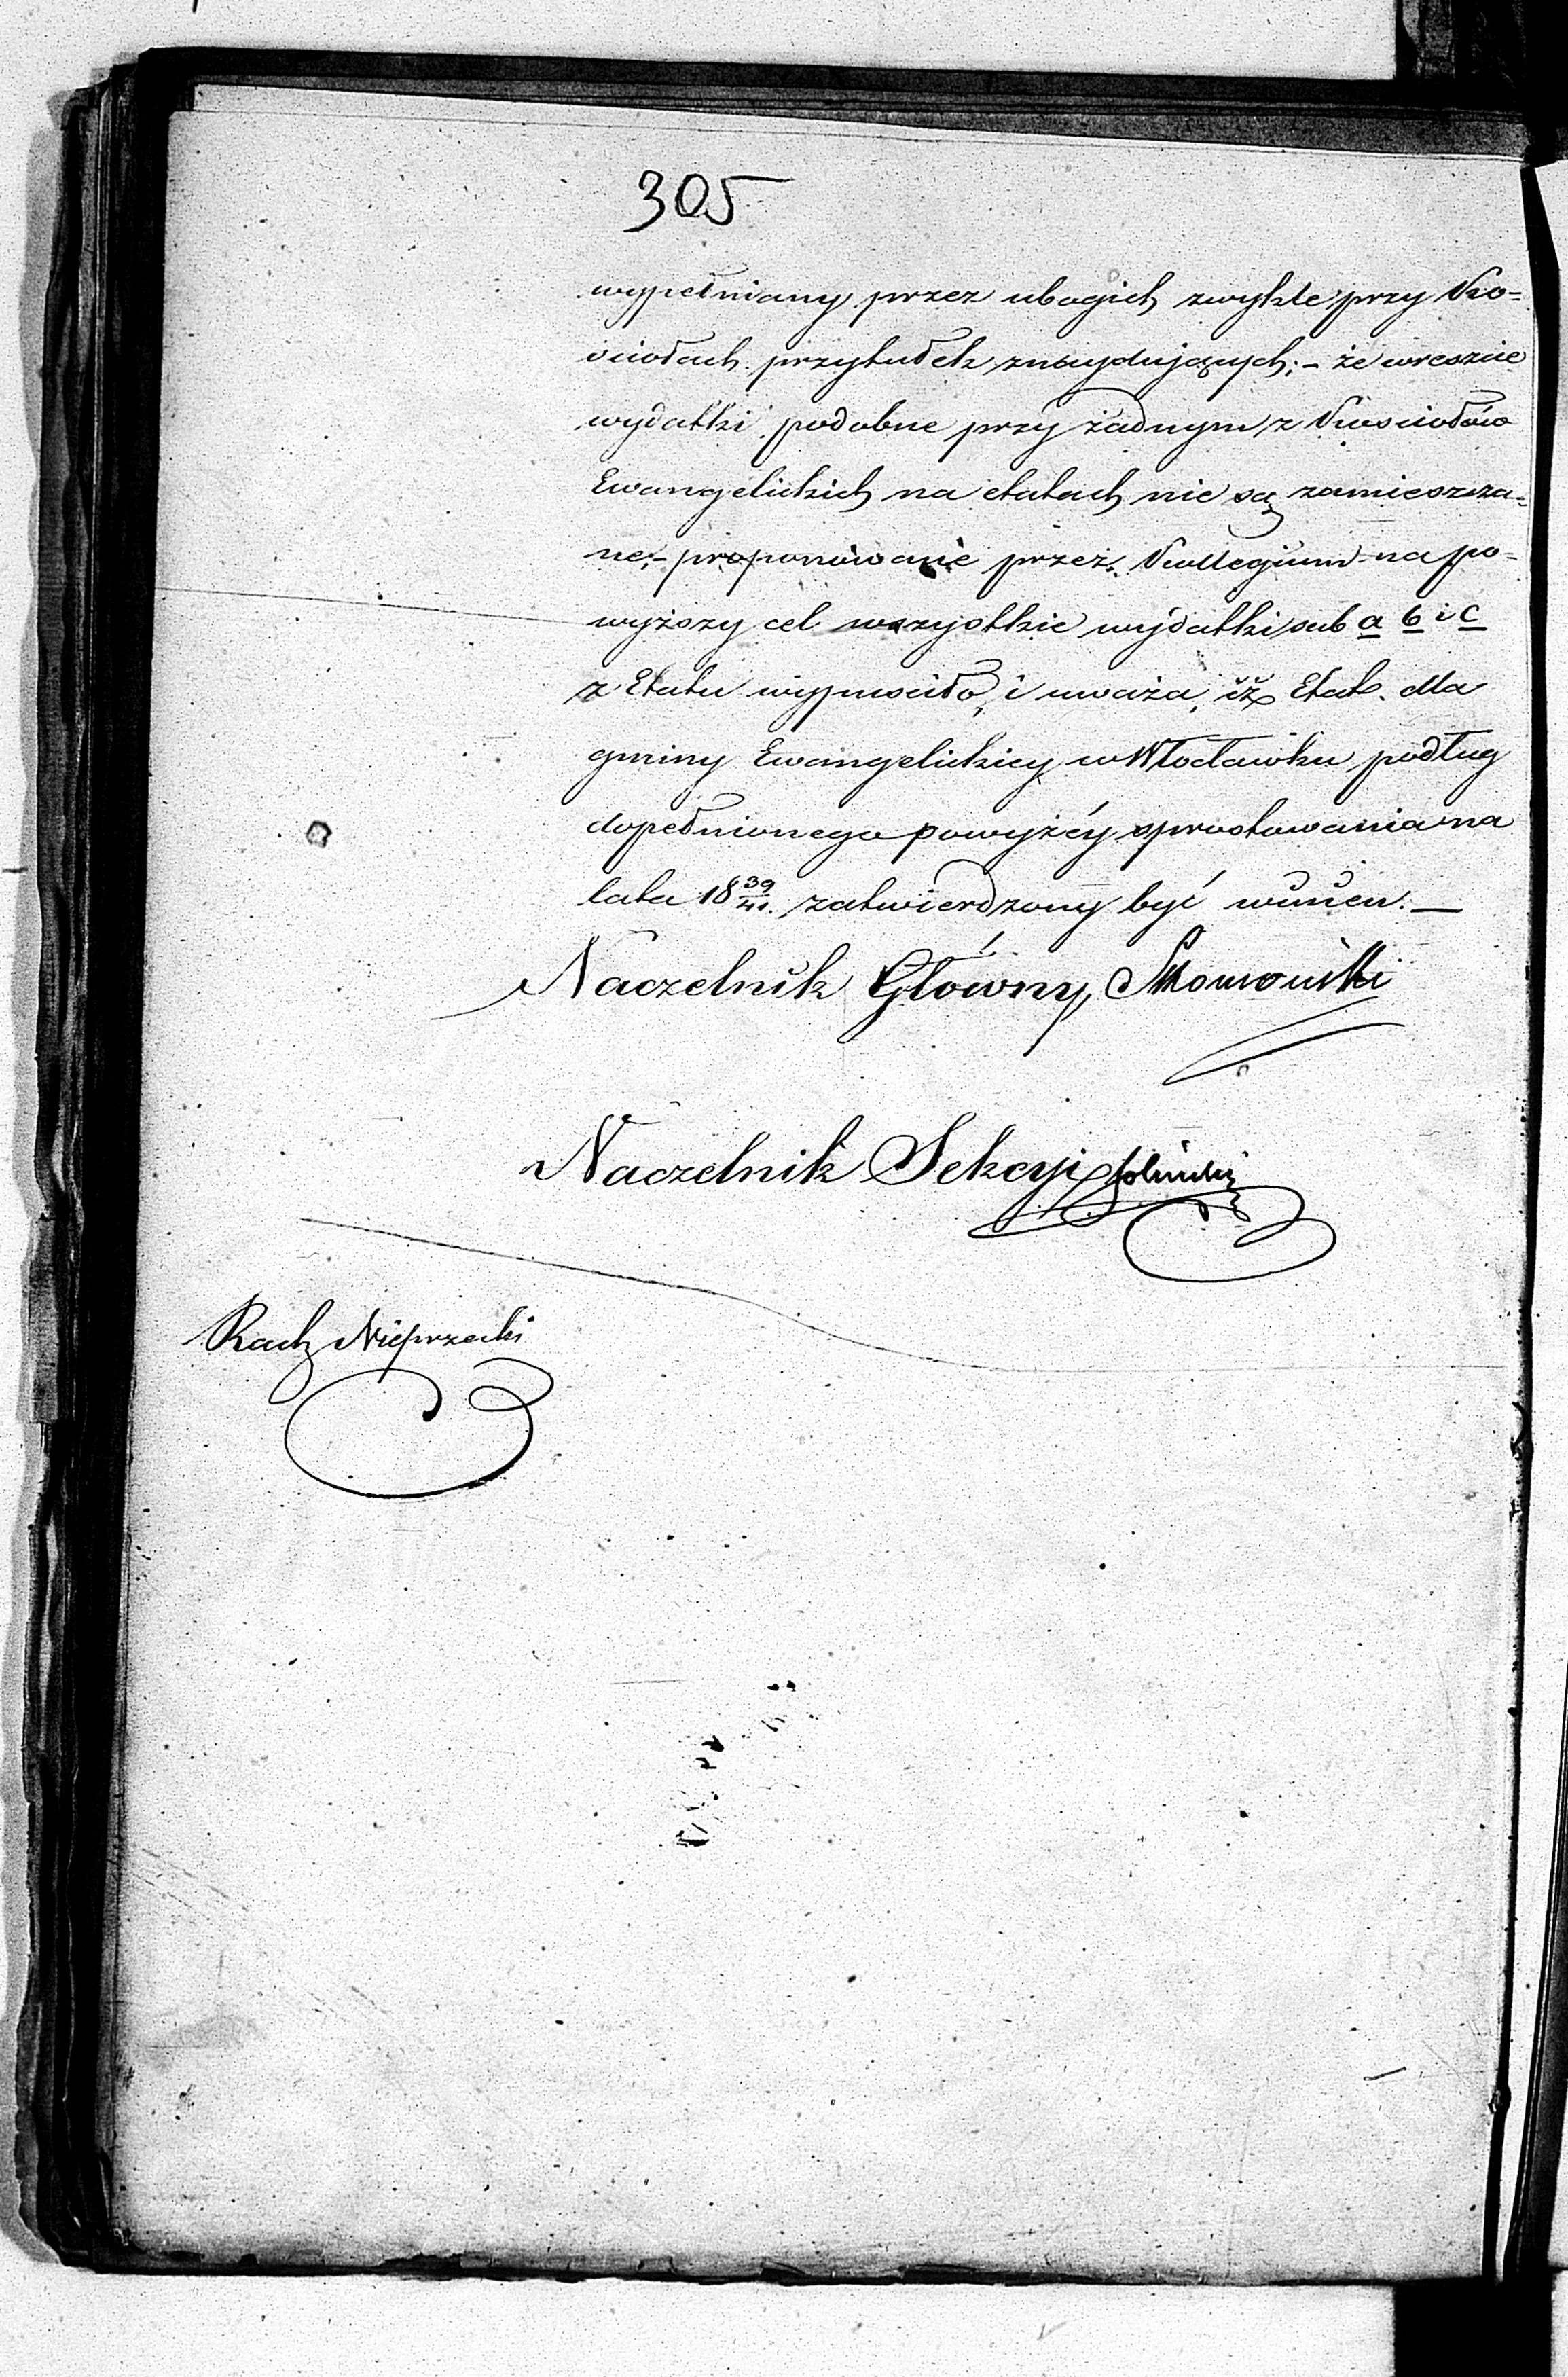 305
wypełniany przez ubogich zwykle przy Ko=
ściołach przytułek znaydujących; – że wreszcie
wydatki podobne przy żadnym z Kościołów
Ewangelickich na etatach nie są zamieszcza=
ne; – proponowane przez Kollegium na po=
wyższy cel wszystkie wydatki sub a b i c
z Etatu wypuściło, i uważa, iż Etat dla
gminy Ewangelickiey w Włocławku podług
dopełnionego powyżéy sprostowania na
lata 18 39/41. zatwierdzony być winien. —
Naczelnik Główny
Naczelnik Sekcyi
Rach